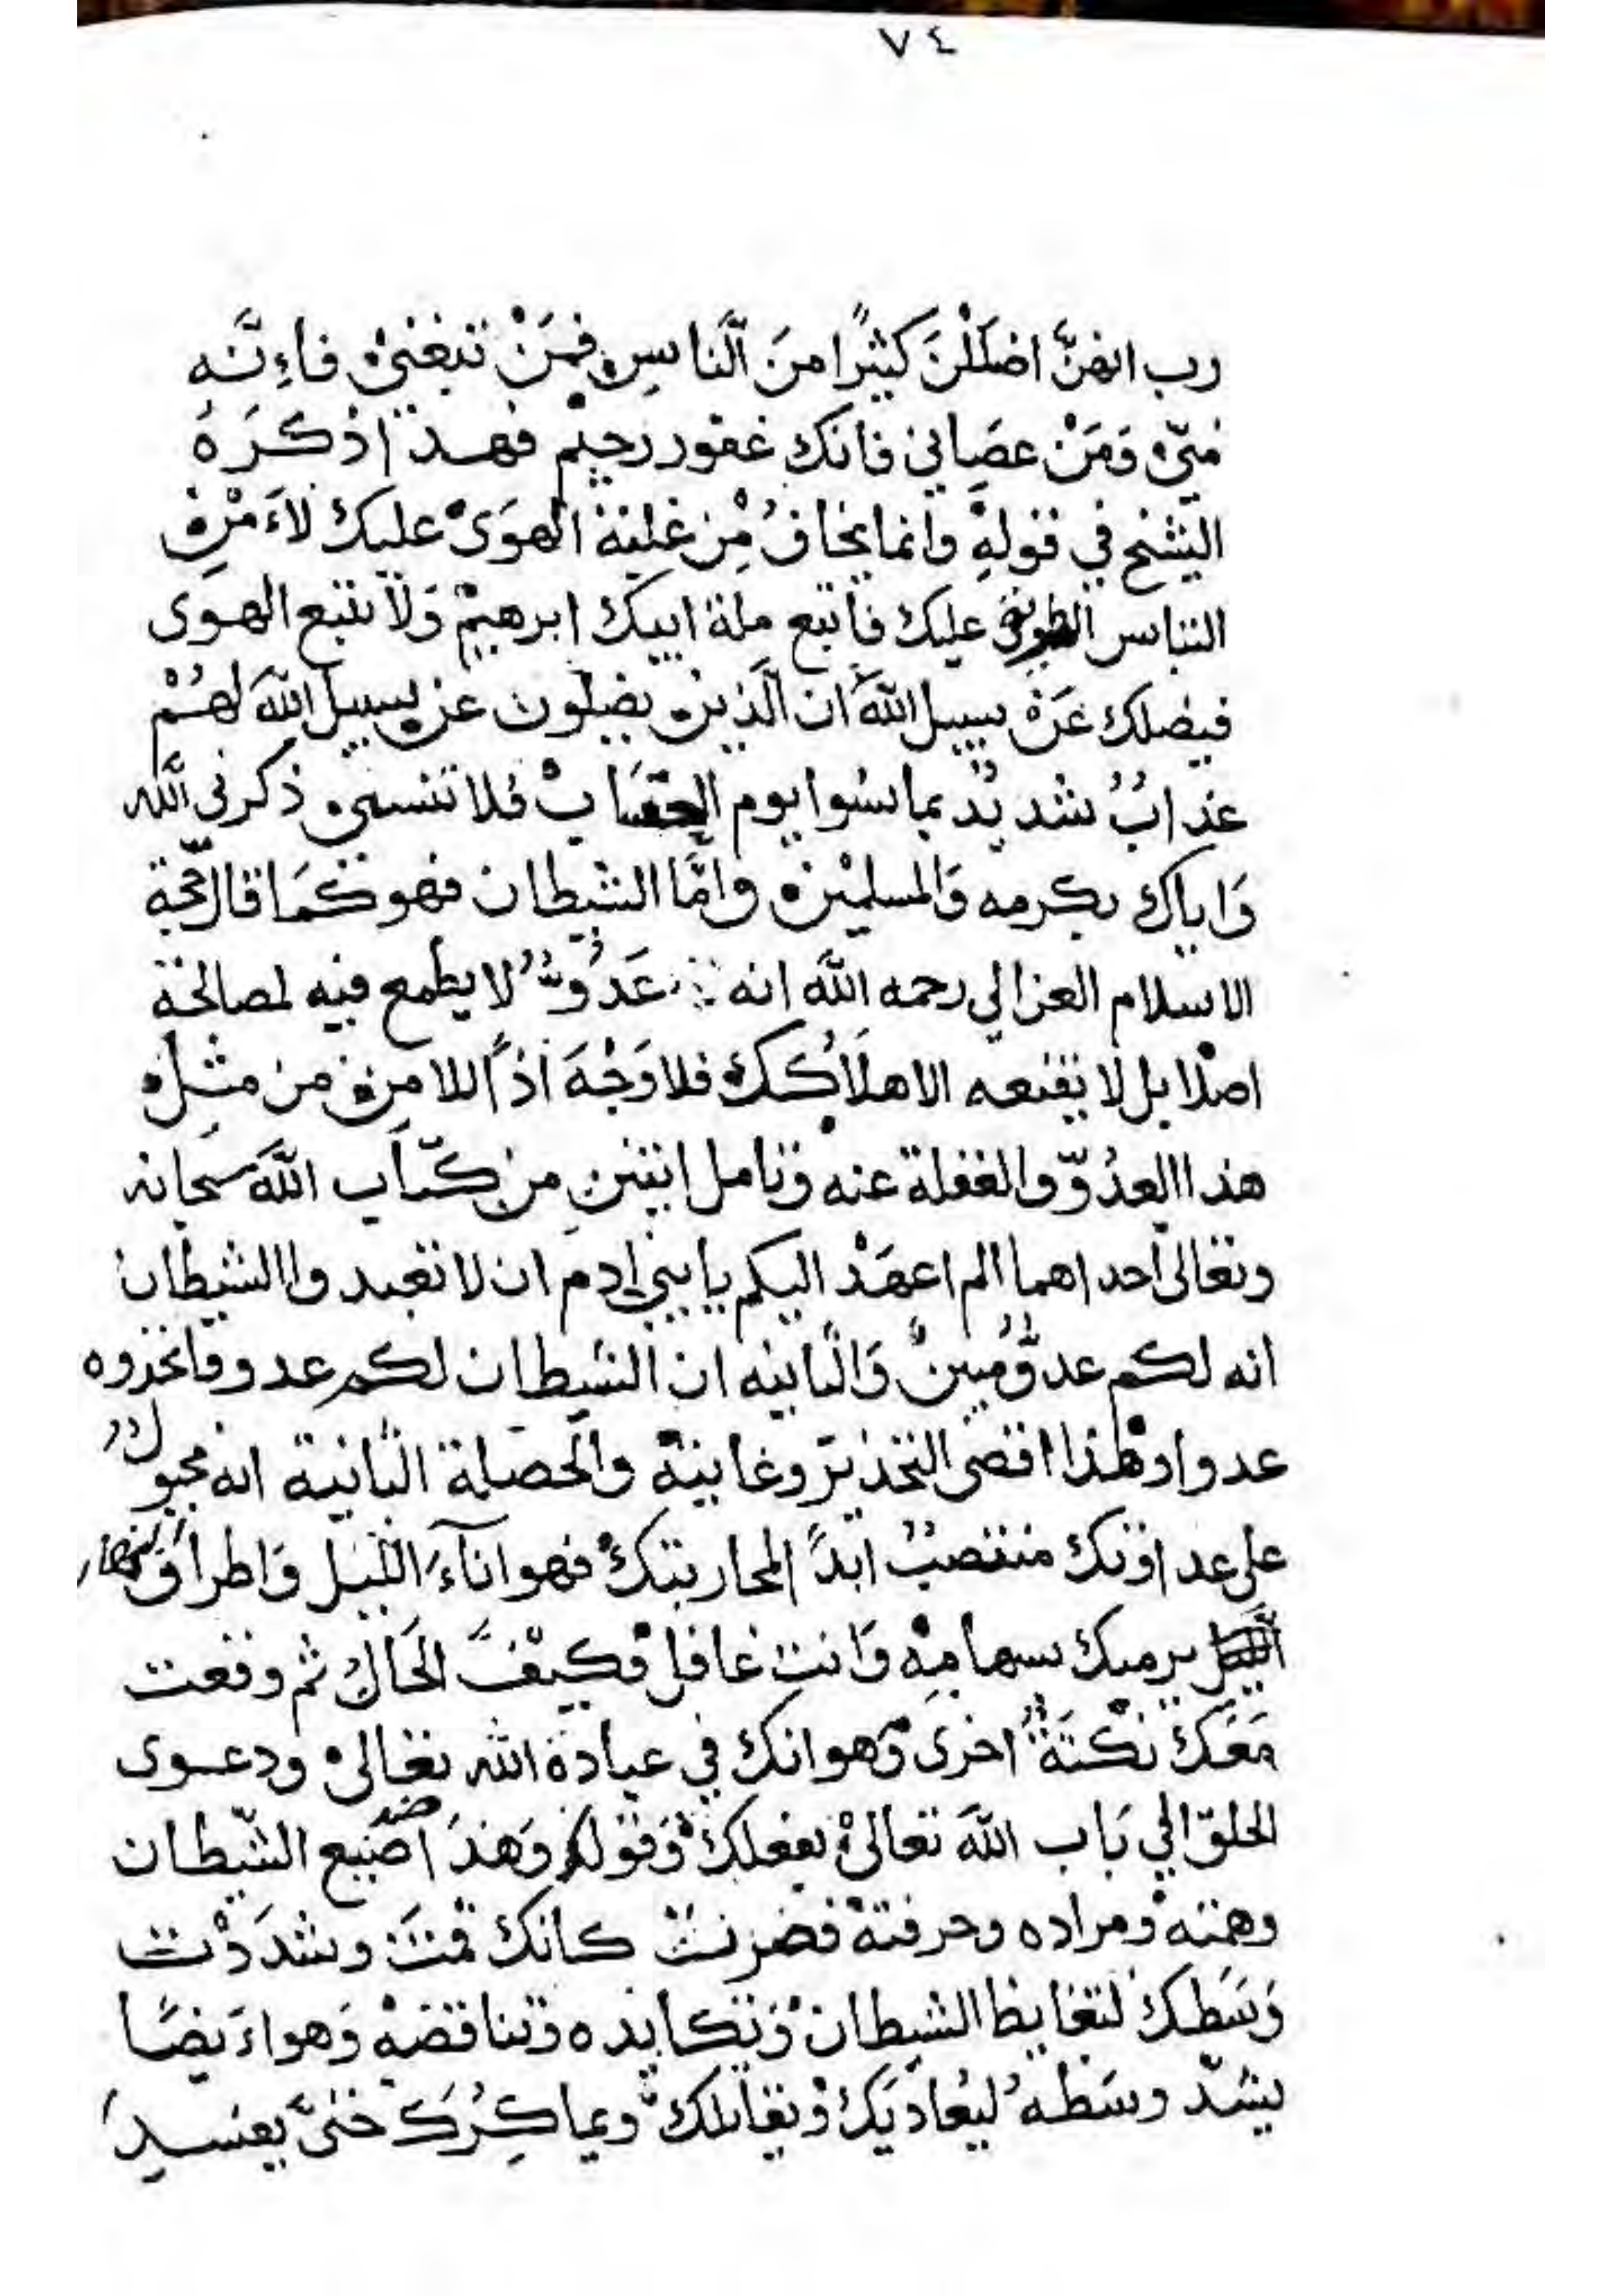 ٧٤
رب انهنّ اضلَلْنَ كثيرًا منَ النَّاسِ فمَنْ تبعَنيْ فاءِنَّه
مّنيْ وَمَنْ عصَاني فانك غفور رحيم فهذا ذكَرَهُ
الشيْخ في قوله وانما يخافُ مِنْ غلبة الهَوَىْ عليك لاَءَمْرِ
الناس عليك فاتبع ملة ابيك ابرهيمْ وَلا تتبع الهوى
فيضلك عَنْ سبيل اللّهَ ان الَّذينْ يضلون عن سبيل اللّهَ لهُمْ
عذابٌ شديدٌ بما نسُوا يوم الحسَابْ فلا تنسىْ ذكرني اللَّه
وَاياك بكرمه وَالمسلميْن وامَّا الشيطان فهو كَمَا قال حجّة
الاسلام الغزالي رحمه اللّهَ انه عَدُوٌّ لا يطمع فيه لمصالحة
اصْلا بل لا يقنعه الا هلَاكُكَ فلا وَجْهَ اذًا للامن من مثلِ
هذا العدُوّ والغفلة عنه وتامل ايتينِ من كتَاب اللّهَ سبحانه
وتعالى احداهما الم اعهَدْ اليكم يا بني ادم ان لا تعبدوا الشيطان
انه لكم عدوٌّ مبينٌ وَالثانيه ان الشيطان لكم عدو فاتخذوه
عدوا وهٰذا اقصى التحذيرَ وغايتهْ والخصلة الثانية انه مجبولٌ
على عداوتك منتصبٌ ابدًا لمحاربتكْ فهو اناءَ اللّيل وَاطرافَ النهار
يرميك بسهامِهْ وَانت غافلْ فكيْفَ الحَالُ ثم وقعت
مَعَكَ نكْتَةٌ اخرىْ وَهو انك في عبادة الله تعالىْ ودعوى
الخلق الي بَاب اللّهَ تعالىْ بفعلِكَْ وَقولك وَهذا ضد صَنيع الشّيطان
وهمته ومراده وحرفتهْ فضرتَ كانك قمتَ وشددْتَ
وَسَطكَ لتغايظ الشيطانْ وَتكايده وتناقضهْ وَهو ءايَضًا
يشدّ وسَطهُ ليُعاديَكْ وَيقاتلكْ ويماكِرُكَ حتىّ يفسدِ